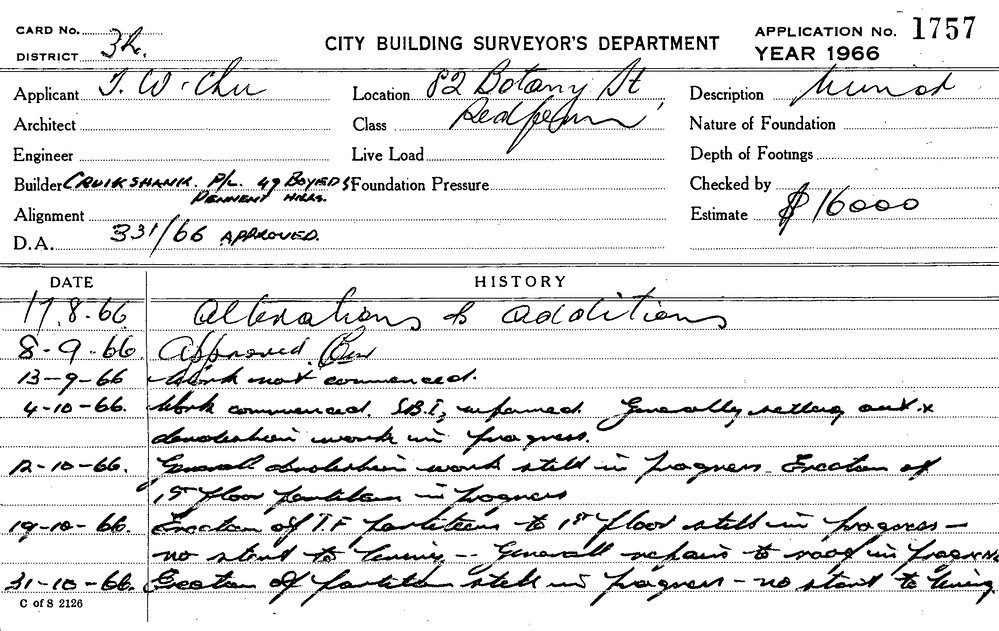 CARD No.
DISTRICT 3h.
CITY BUILDING SURVEYOR'S DEPARTMENT
APPLICATION No. 1757
YEAR 1966
Applicant J. W. Chu
Location 82 Botany St
Description Minor
Architect
Class Redfern
Nature of Foundation
Engineer
Live Load
Depth of Footings
Builder CRUIKSHANK. P/L. 49 BOYED St
PENNENT HILLS.
Foundation Pressure
Checked by
Alignment
Estimate $16000
D.A. 331/66 APPROVED.
DATE HISTORY
17.8.66 Alterations & additions
8-9-66. Approved.
13-9-66 Work not commenced.
4-10-66. Work commenced. S.B.I. informed. Generally setting out x
demolition work in progress.
12-10-66. General demolition work still in progress. Erection of
1st floor partition in progress
19-10-66. Erection of T.F partitions to 1st floor still in progress —
no start to lining -- General repairs to roof in progress
31-10-66. Erection of partition still in progress — no start to lining.
C of S 2126